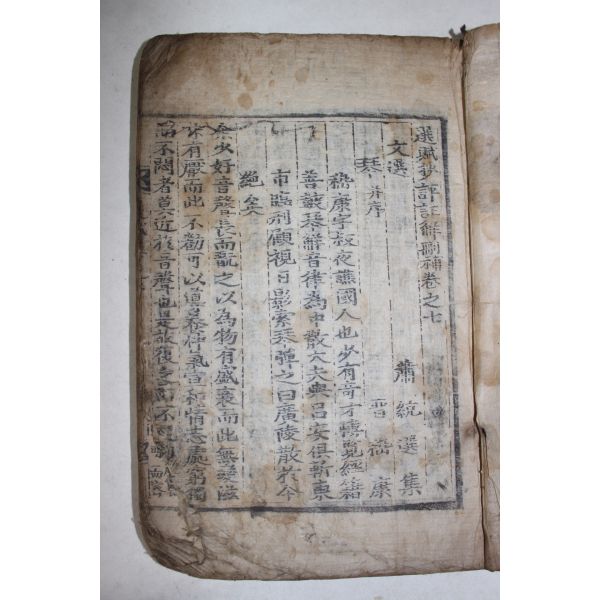 選賦抄評註解刪補卷之七
文選 蕭統選集
琴 并序 晋 嵇康
嵇康字叔夜譙國人也少有奇才博覽經籍
善鼓琴解音律為中散大夫與呂安俱斬東
市臨刑顧視日影索琴彈之曰廣陵散於今
絕矣
余少好音聲長而翫之以為物有盛衰而此無變滋
味有厭而此不勌可以導養神氣宣和情志處窮獨
而不悶者莫近於音聲也是故復之而不足